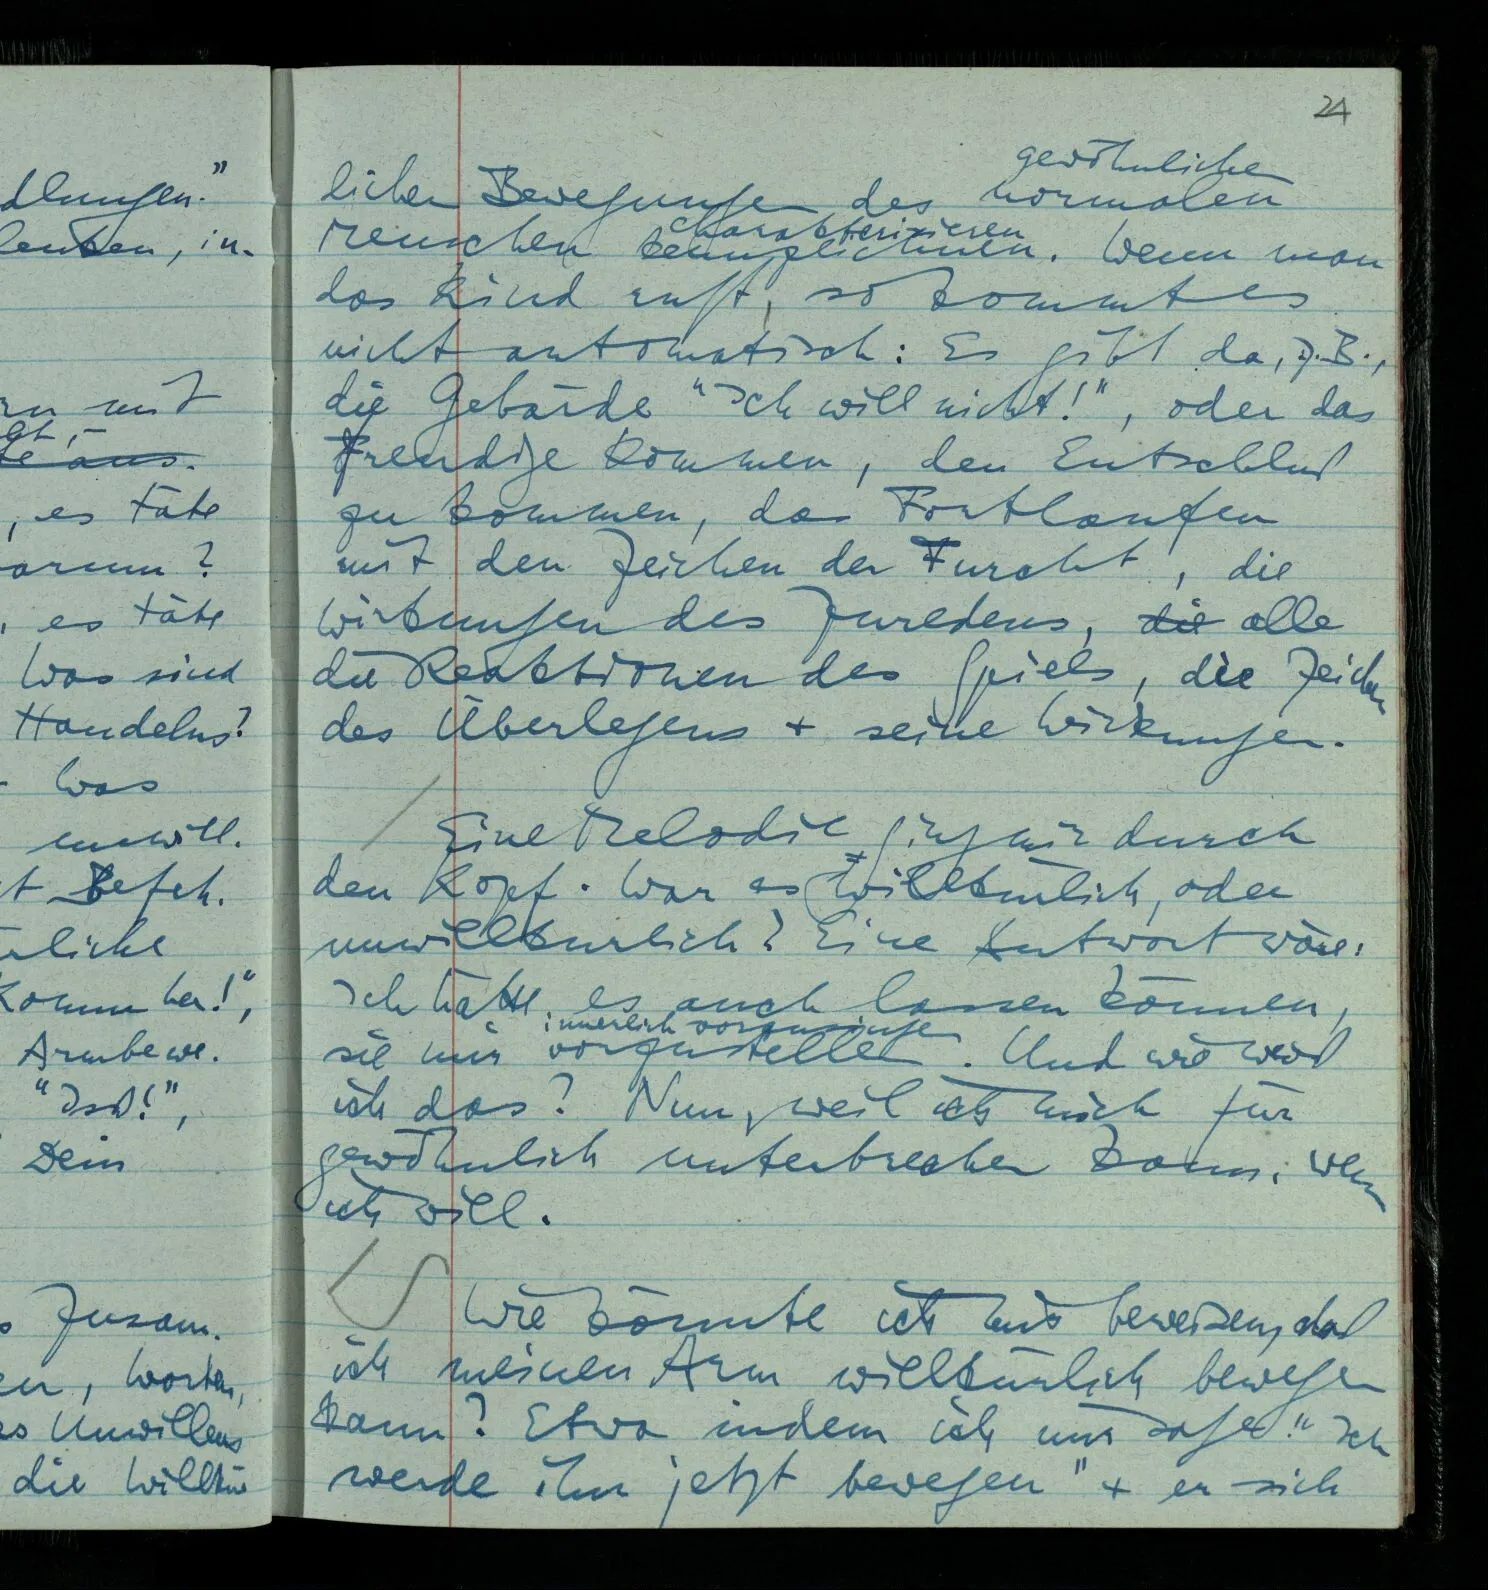 dlungen."
lenken, in-
rn mit
es täte
warum?
es täte
Was sind
Handelns?
Was
unwill-
t Befeh-
rliche
Komm her!",
Armbewe-
"Iss!",
Dein
s Zusam-
en, Worten,
es Unwillens
die Willkür
24
gewöhnlichen
lichen Bewegungen des normalen
charakterisieren
Menschen kennzeichnen. Wenn man
das Kind ruft, so kommt es
nicht automatisch: Es gibt da, z.B.,
die Gebärde "Ich will nicht!", oder das
freudige Kommen, den Entschluß
zu kommen, das Fortlaufen
mit den Zeichen der Furcht, die
Wirkungen des Zuredens, die alle
die Reaktionen des Spiels, die Zeichen
des Überlegens + seine Wirkungen.
Eine Melodie ging mir durch
den Kopf. War es willkürlich, oder
unwillkürlich? Eine Antwort wäre:
Ich hätte es auch lassen können,
innerlich vorzusingen
sie mir vorzustellen. Und wie weiß
ich das? Nun, weil ich mich für
gewöhnlich unterbrechen kann, wenn
ich will.
Wie könnte ich mir beweisen, daß
ich meinen Arm willkürlich bewegen
kann? Etwa indem ich mir sage: "Ich
werde ihn jetzt bewegen" + er sich